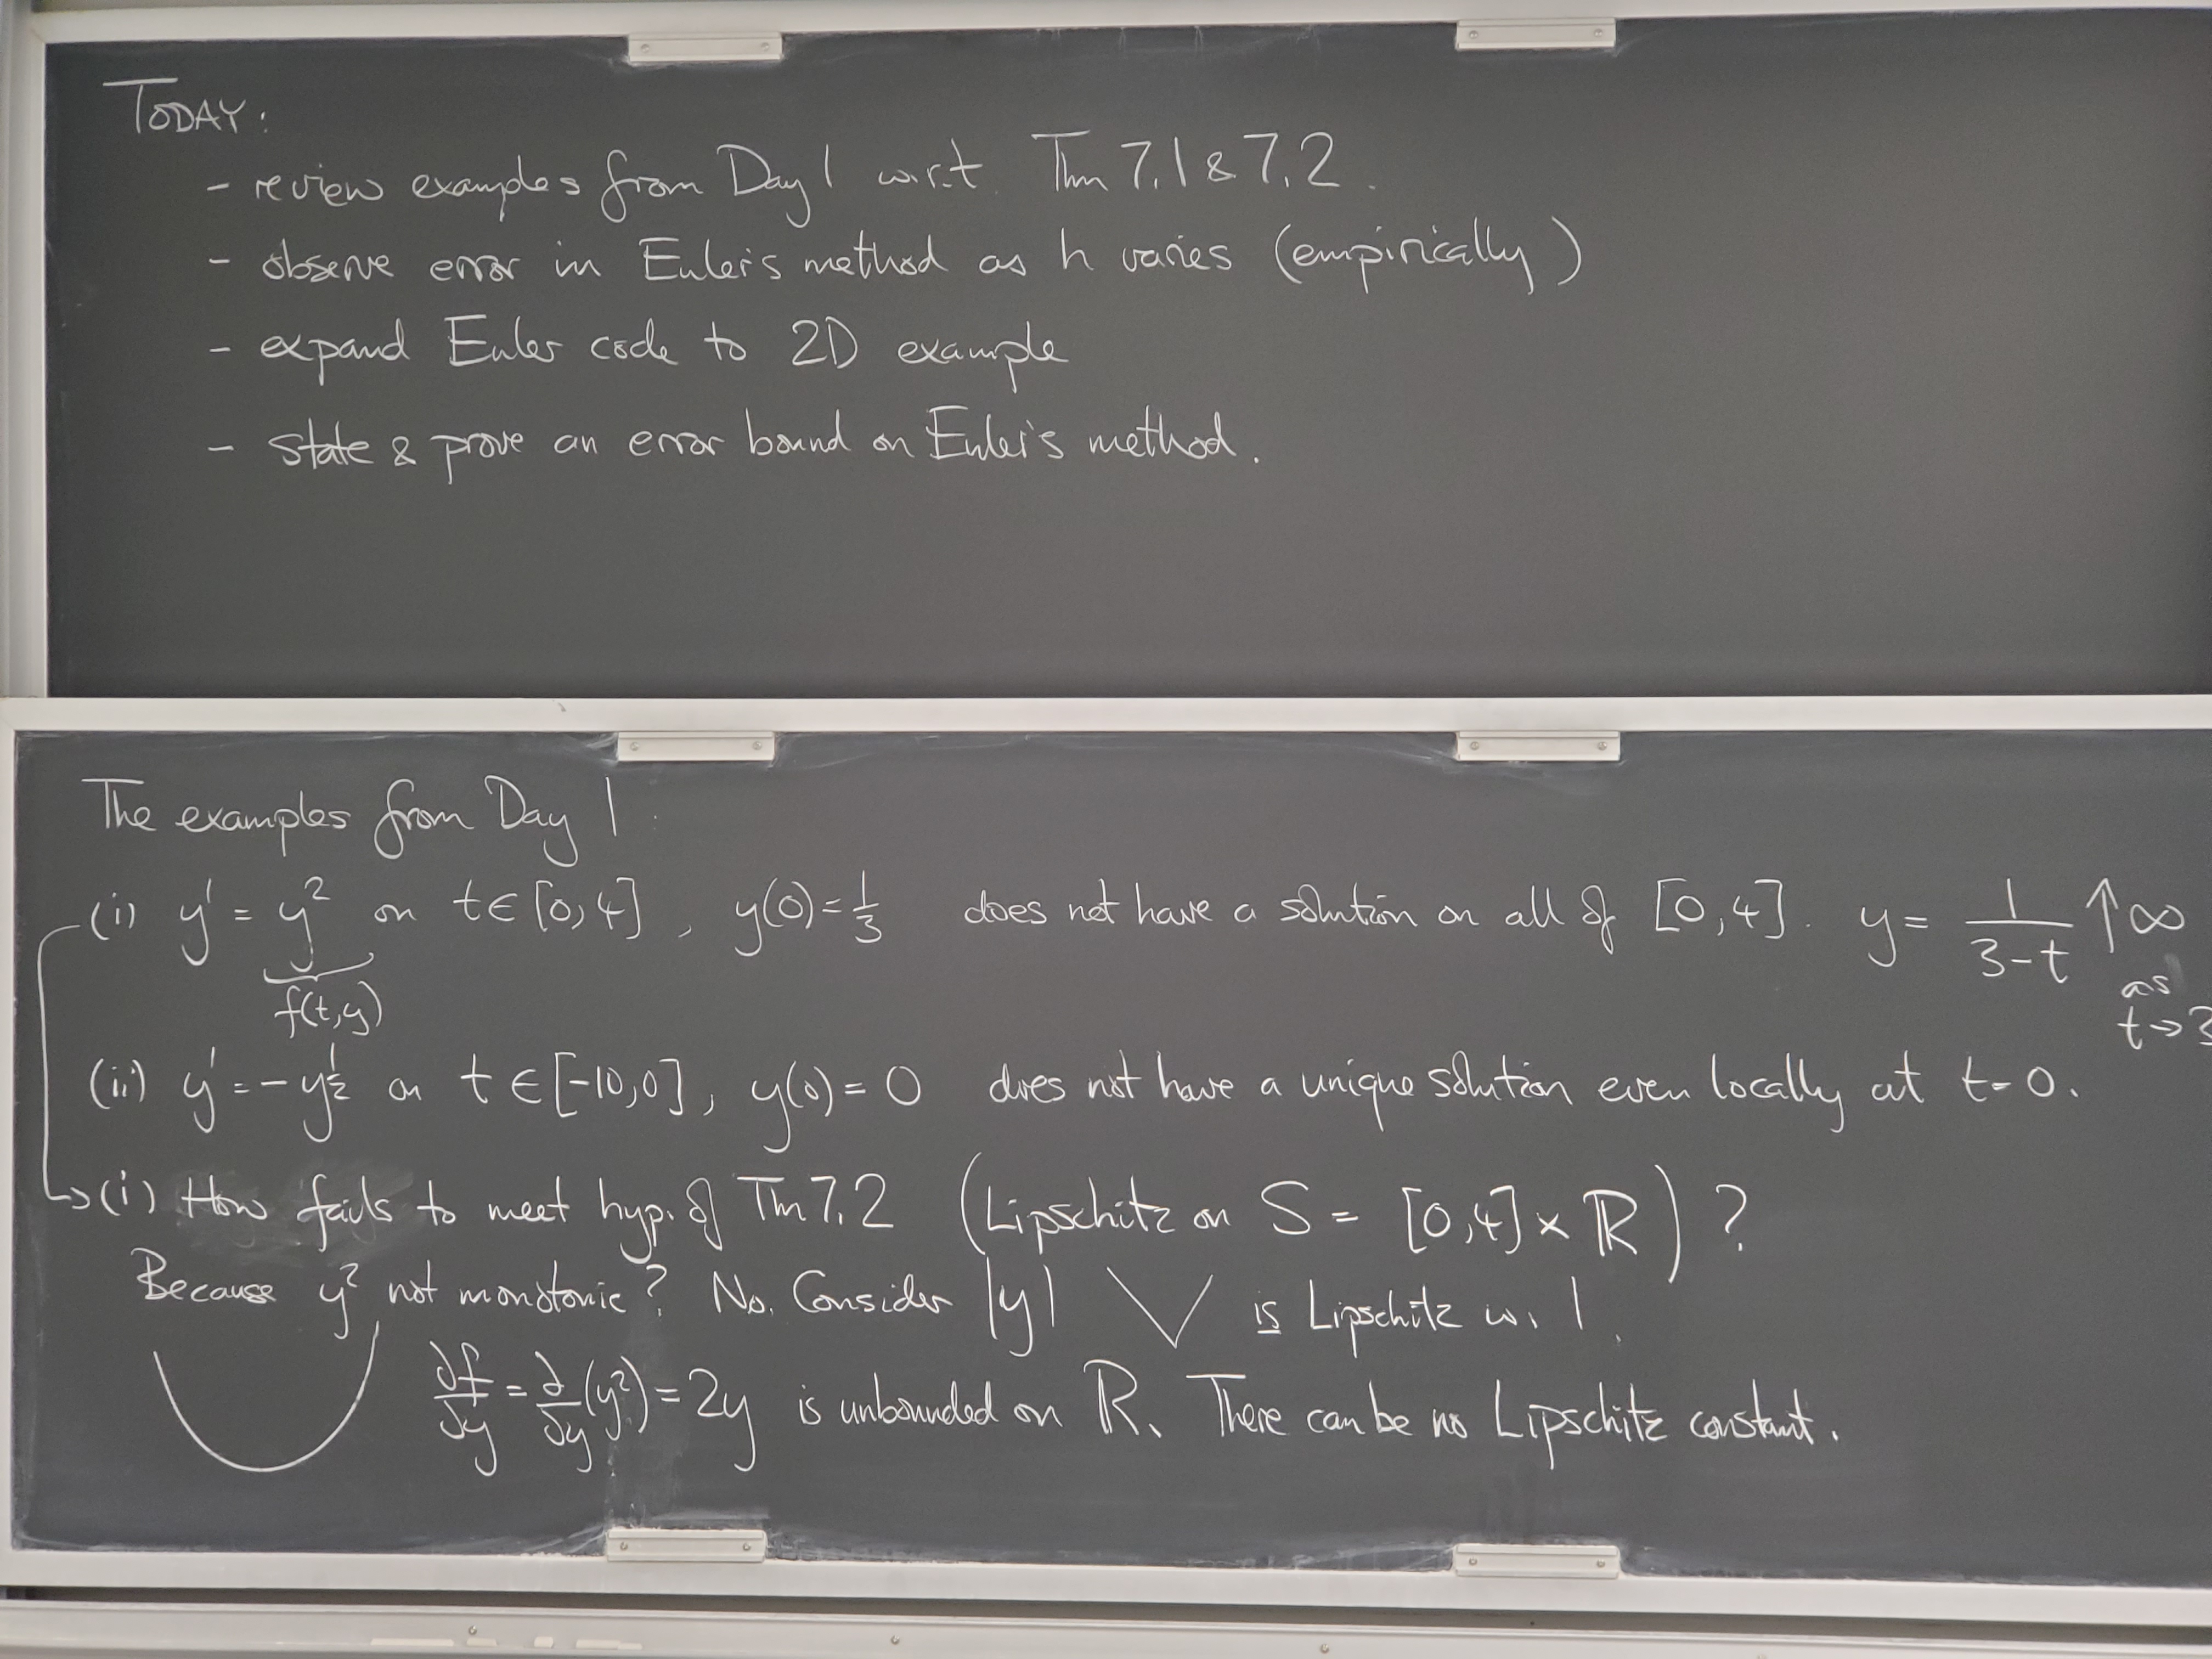 TODAY:
- review examples from Day 1 w.r.t. Thm 7.1 & 7.2.
- observe error in Euler's method as h varies (empirically)
- expand Euler code to 2D example
- state & prove an error bound on Euler's method.
The examples from Day 1.
(i) y' = y² on t∈[0,4], y(0)=1/3 does not have a solution on all of [0,4]. y= 1/(3-t) ↑∞
as
t→3
f(t,y)
(ii) y'=-y^½ on t∈[-10,0], y(0)=0 does not have a unique solution even locally at t=0.
→(i) How fails to meet hyp. of Tm 7.2 (Lipschitz on S = [0,4]×ℝ)?
Because y² not monotonic? No. Consider |y| is Lipschitz w. 1.
∂f/∂y = ∂/∂y(y²) = 2y is unbounded on ℝ. There can be no Lipschitz constant.